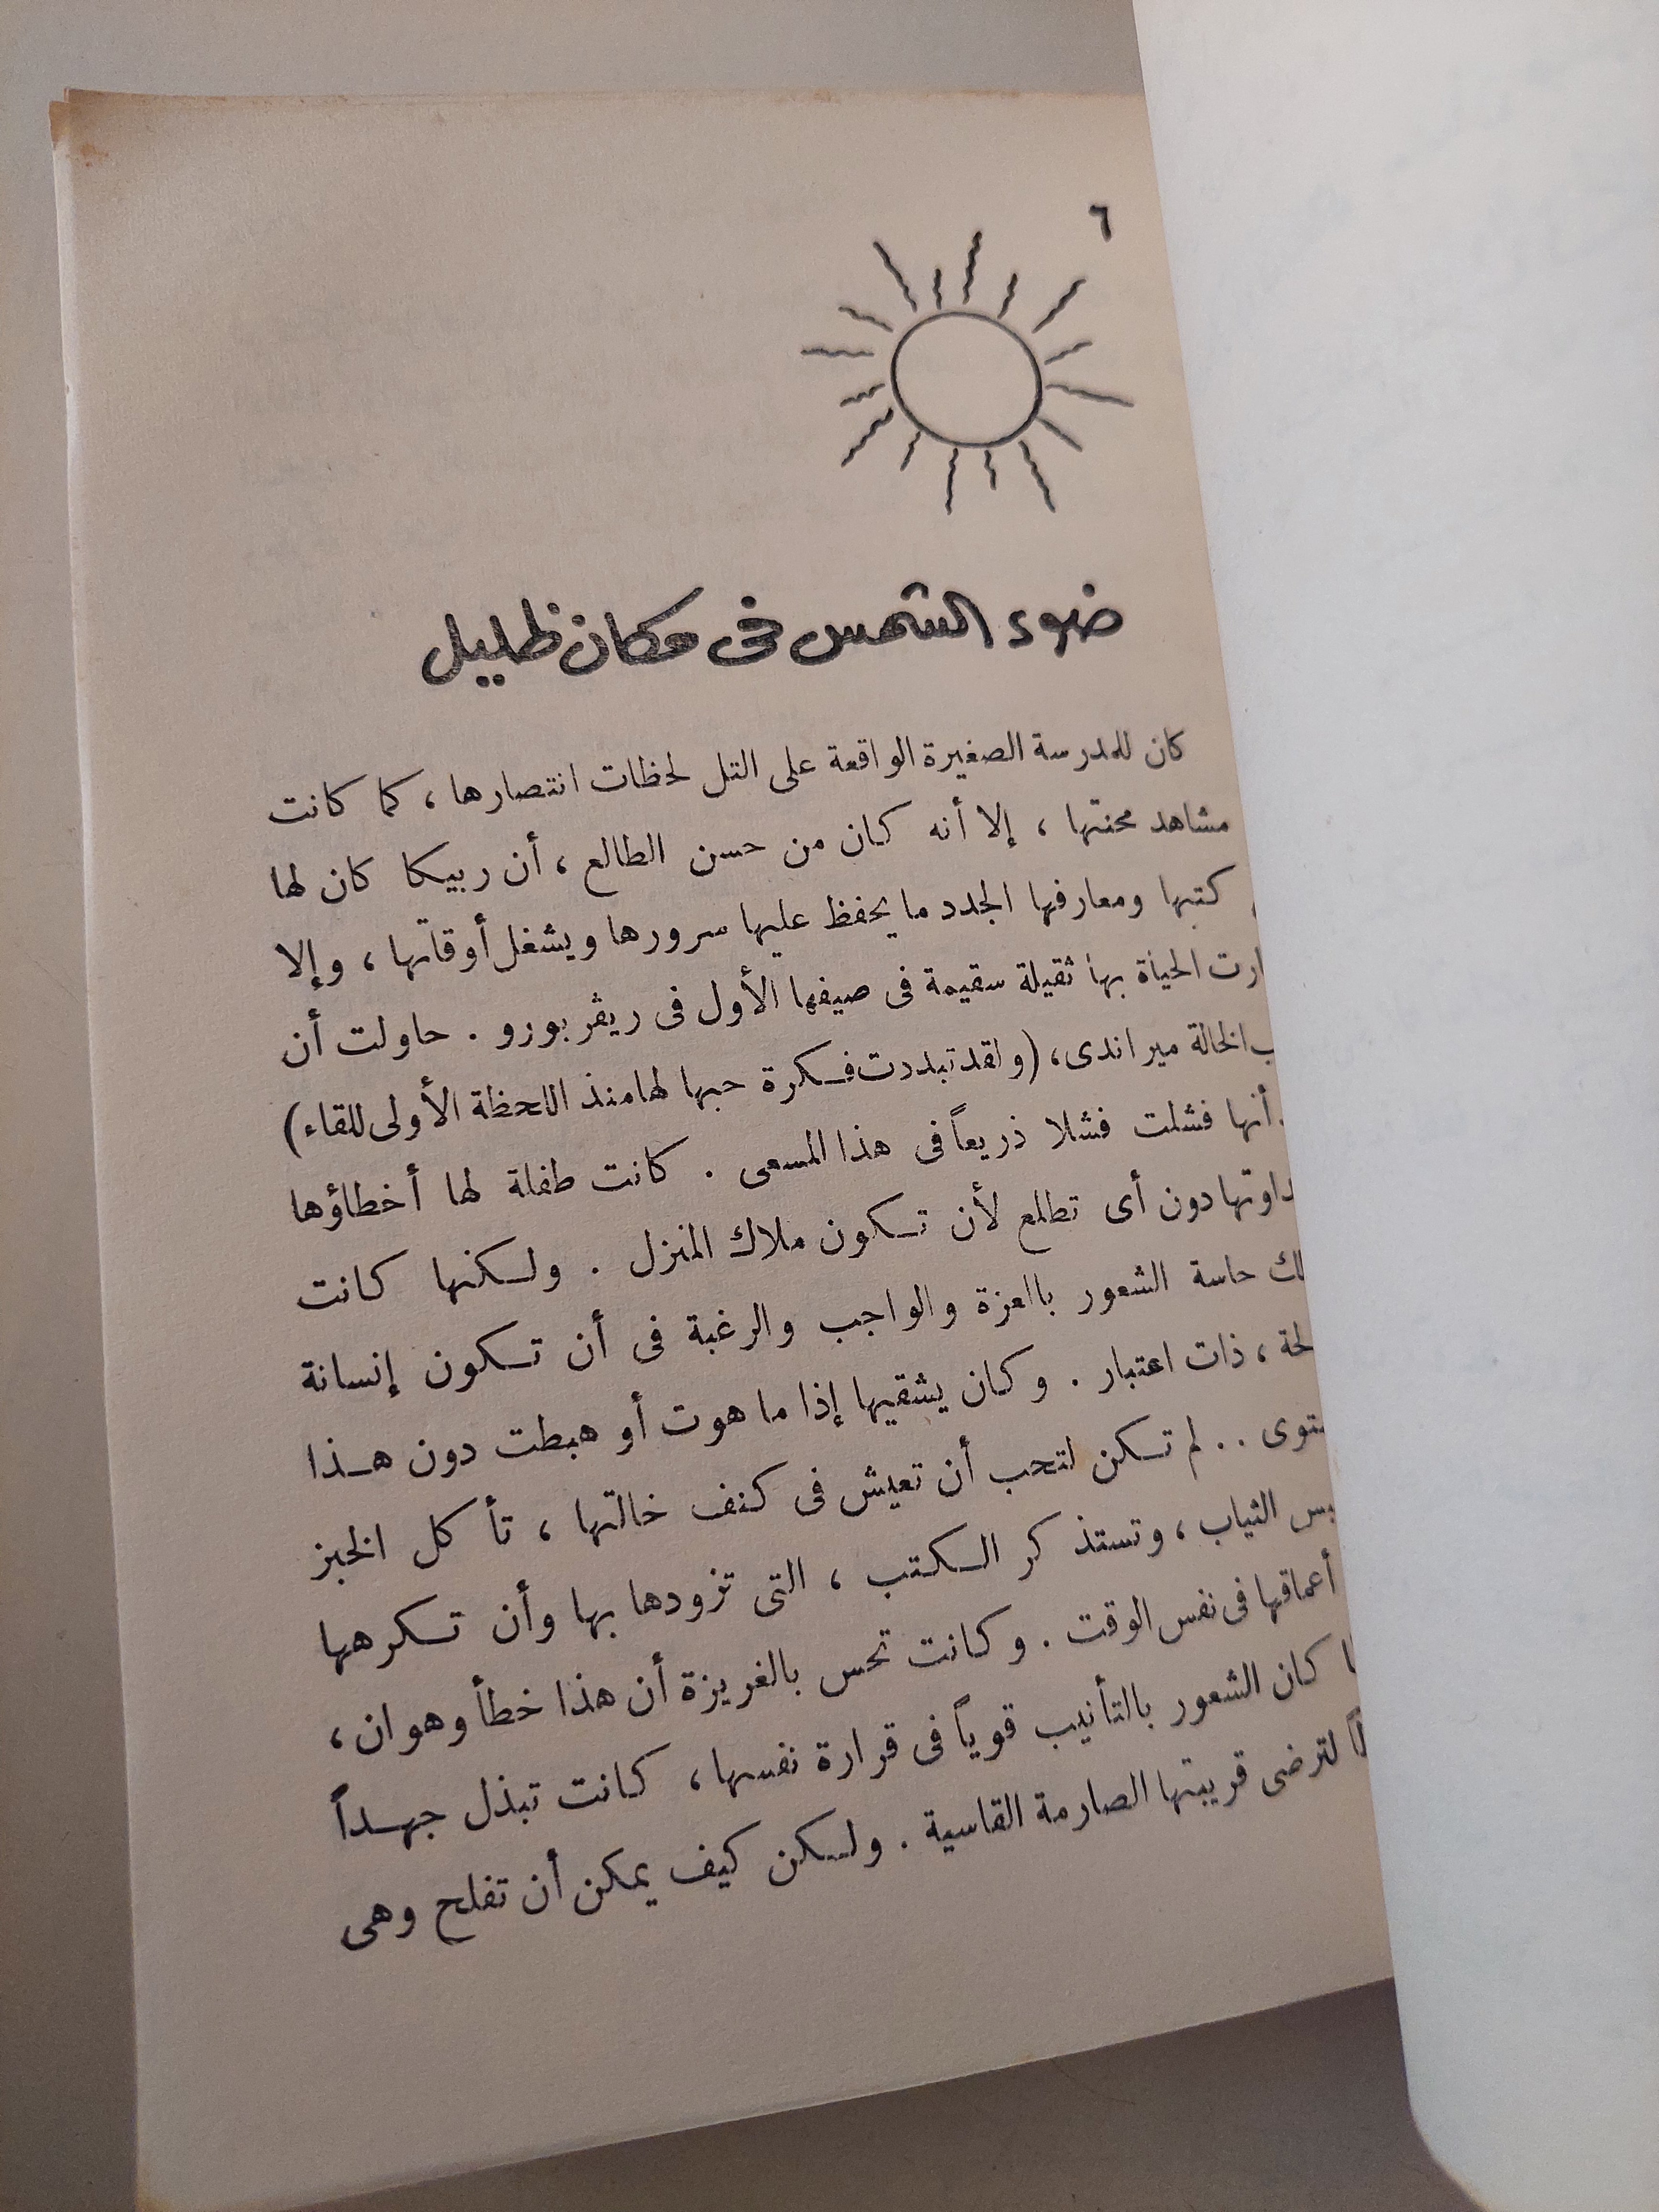 ٦
ضوء الشمس فى مكان ظليل
كان للمدرسة الصغيرة الواقعة على التل لحظات انتصارها ، كما كانت
مشاهد محنتها ، إلا أنه كان من حسن الطالع ، أن ربيكا كان لها
كتبها ومعارفها الجدد ما يحفظ عليها سرورها ويشغل أوقاتها ، وإلا
الحياة بها ثقيلة سقيمة فى صيفها الأول فى ريڤر بورو . حاولت أن
الخالة ميراندى ، (ولقد تبددت فكرة حبها لها منذ اللحظة الأولى للقاء)
أنها فشلت فشلا ذريعاً فى هذا المسعى . كانت طفلة لها أخطاؤها
دون أى تطلع لأن تكون ملاك المنزل . ولكنها كانت
حاسة الشعور بالعزة والواجب والرغبة فى أن تكون إنسانة
، ذات اعتبار . وكان يشقيها إذا ما هوت أو هبطت دون هذا
.. لم تكن لتحب أن تعيش فى كنف خالتها ، تأكل الخبز
الثياب ، وتستذكر الكتب ، التى تزودها بها وأن تكرهها
أعماقها فى نفس الوقت . وكانت تحس بالغريزة أن هذا خطأ وهوان ،
كان الشعور بالتأنيب قوياً فى قرارة نفسها ، كانت تبذل جهداً
لترضى قريبتها الصارمة القاسية . ولكن كيف يمكن أن تفلح وهى